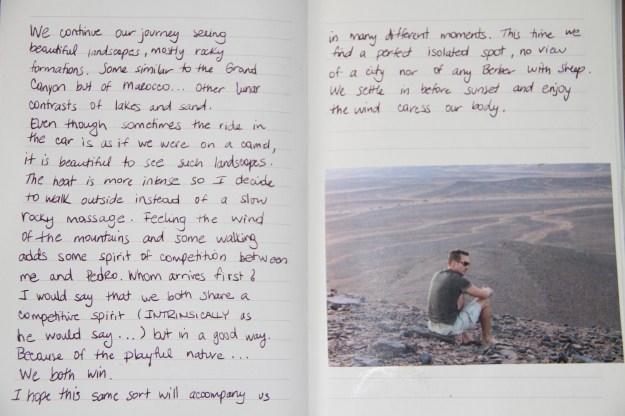 We continue our journey seeing
beautiful landscapes, mostly rocky
formations. Some similar to the Grand
Canyon but of Marocco... other lunar
contrasts of lakes and sand.
Even though sometimes the ride in
the car is as if we were on a camel,
it is beautiful to see such landscapes.
The heat is more intense so I decide
to walk outside instead of a slow
rocky massage. Feeling the wind
of the mountains and some walking
adds some spirit of competition between
me and Pedro. Whom arrives first?
I would say that we both share a
competitive spirit (INTRINSICALLY as
he would say...) but in a good way.
Because of the playful nature...
We both win.
I hope this same sort will accompany us
in many different moments. This time we
find a perfect isolated spot, no view
of a city nor of any Berber with sheep.
We settle in before sunset and enjoy
the wind caress our body.